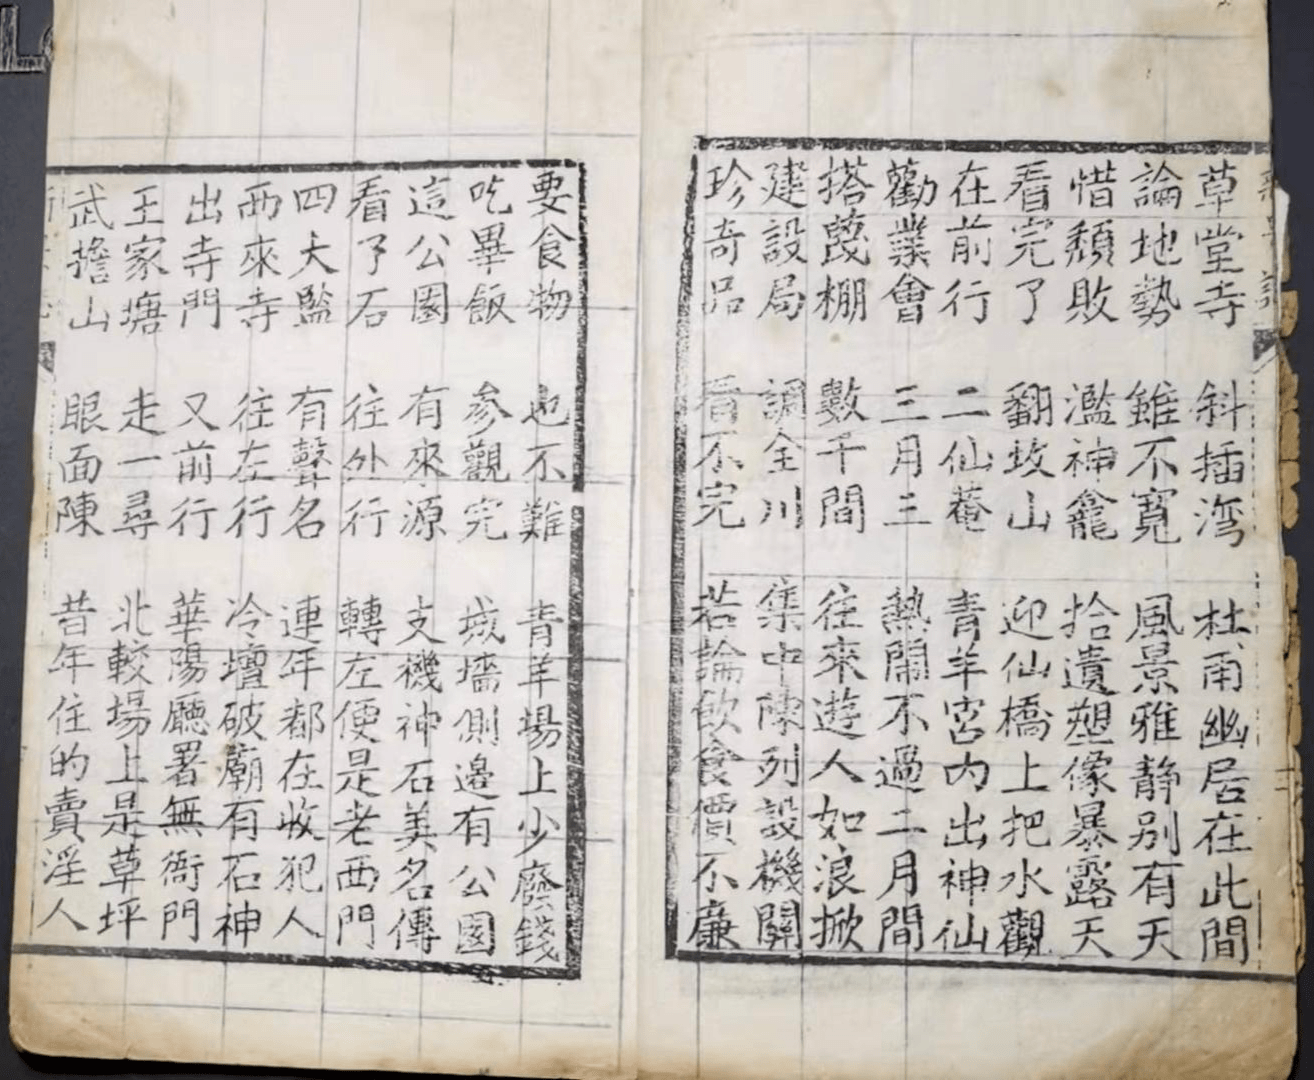 草堂寺 斜插灣 杜甫幽居在此間
論地勢 雖不寬 風景雅静别有天
惜頹敗 濫神龕 拾遺塑像暴露天
看完了 翻坟山 迎仙橋上把水觀
在前行 二仙菴 青羊宮内出神仙
勸業會 三月三 熱鬧不過二月間
搭蔑棚 數千間 往來遊人如浪掀
建設局 調全川 集中陳列設機關
珍奇品 看不完 若論飲食價不廉
要食物 也不難 青羊場上少廢錢
吃畢飯 参觀完 城墻側邊有公園
這公園 有來源 支機神石美名傳
看了石 往外行 轉左便是老西門
四大監 有聲名 連年都在收犯人
西來寺 往左行 冷壇破廟有石神
出寺門 又前行 華陽廳署無衙門
王家塘 走一尋 北較場上是草坪
武擔山 眼面陳 昔年住的賣淫人